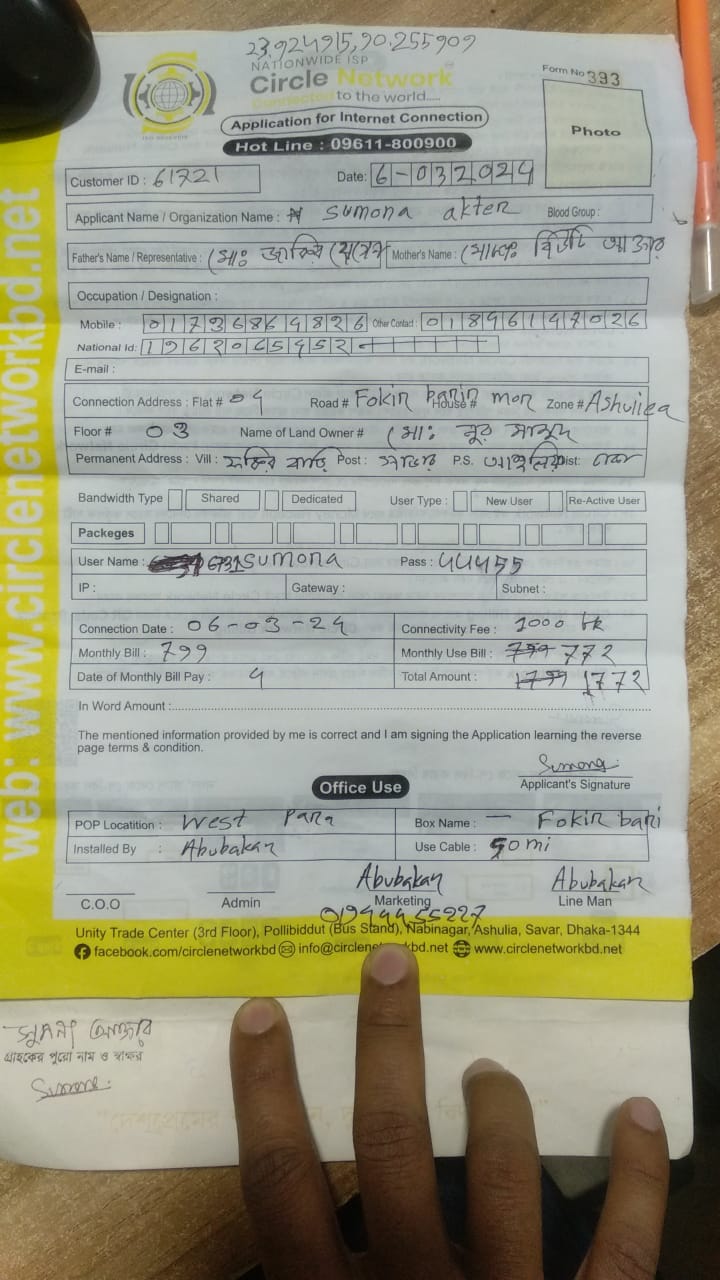 23.924915,90.255909
NATIONWIDE ISP
Circle Network
Connected to the world.....
ISO 9001:2015
Form No 393
Photo
Application for Internet Connection
Hot Line : 09611-800900
Customer ID : 61721 Date: 6-032024
Applicant Name / Organization Name : sumona akter Blood Group :
Father's Name / Representative : মোঃ Mother's Name : মোসাঃ বিউটি আক্তার
Occupation / Designation :
Mobile : 01736864826 Other Contact : 01846147026
National Id: 1962065452
E-mail :
Connection Address : Flat # 04 Road # Fokir barir House # mor Zone # Ashuliea
Floor # 03 Name of Land Owner # মোঃ নুর
Permanent Address : Vill : ফকির বাড়ি Post : সাভার P.S. আশুলিয়া Dist: ঢাকা
Bandwidth Type Shared Dedicated User Type : New User Re-Active User
Packeges
User Name : 6731sumona Pass : 44455
IP : Gateway : Subnet :
Connection Date : 06-03-24 Connectivity Fee : 1000 tk
Monthly Bill : 799 Monthly Use Bill : 799 772
Date of Monthly Bill Pay : 4 Total Amount : 1799 1772
In Word Amount :
The mentioned information provided by me is correct and I am signing the Application learning the reverse
page terms & condition.
Sumona
Applicant's Signature
Office Use
POP Locatition : West Para Box Name : — Fokir bari
Installed By : Abubakar Use Cable : 50mi
Abubakar Abubakar
C.O.O Admin Marketing Line Man
01944455227
Unity Trade Center (3rd Floor), Pollibiddut (Bus Stand), Nabinagar, Ashulia, Savar, Dhaka-1344
facebook.com/circlenetworkbd info@circlenetworkbd.net www.circlenetworkbd.net
web: www.circlenetworkbd.net
সুমনা আক্তার
গ্রাহকের পুরো নাম ও স্বাক্ষর
Sumona